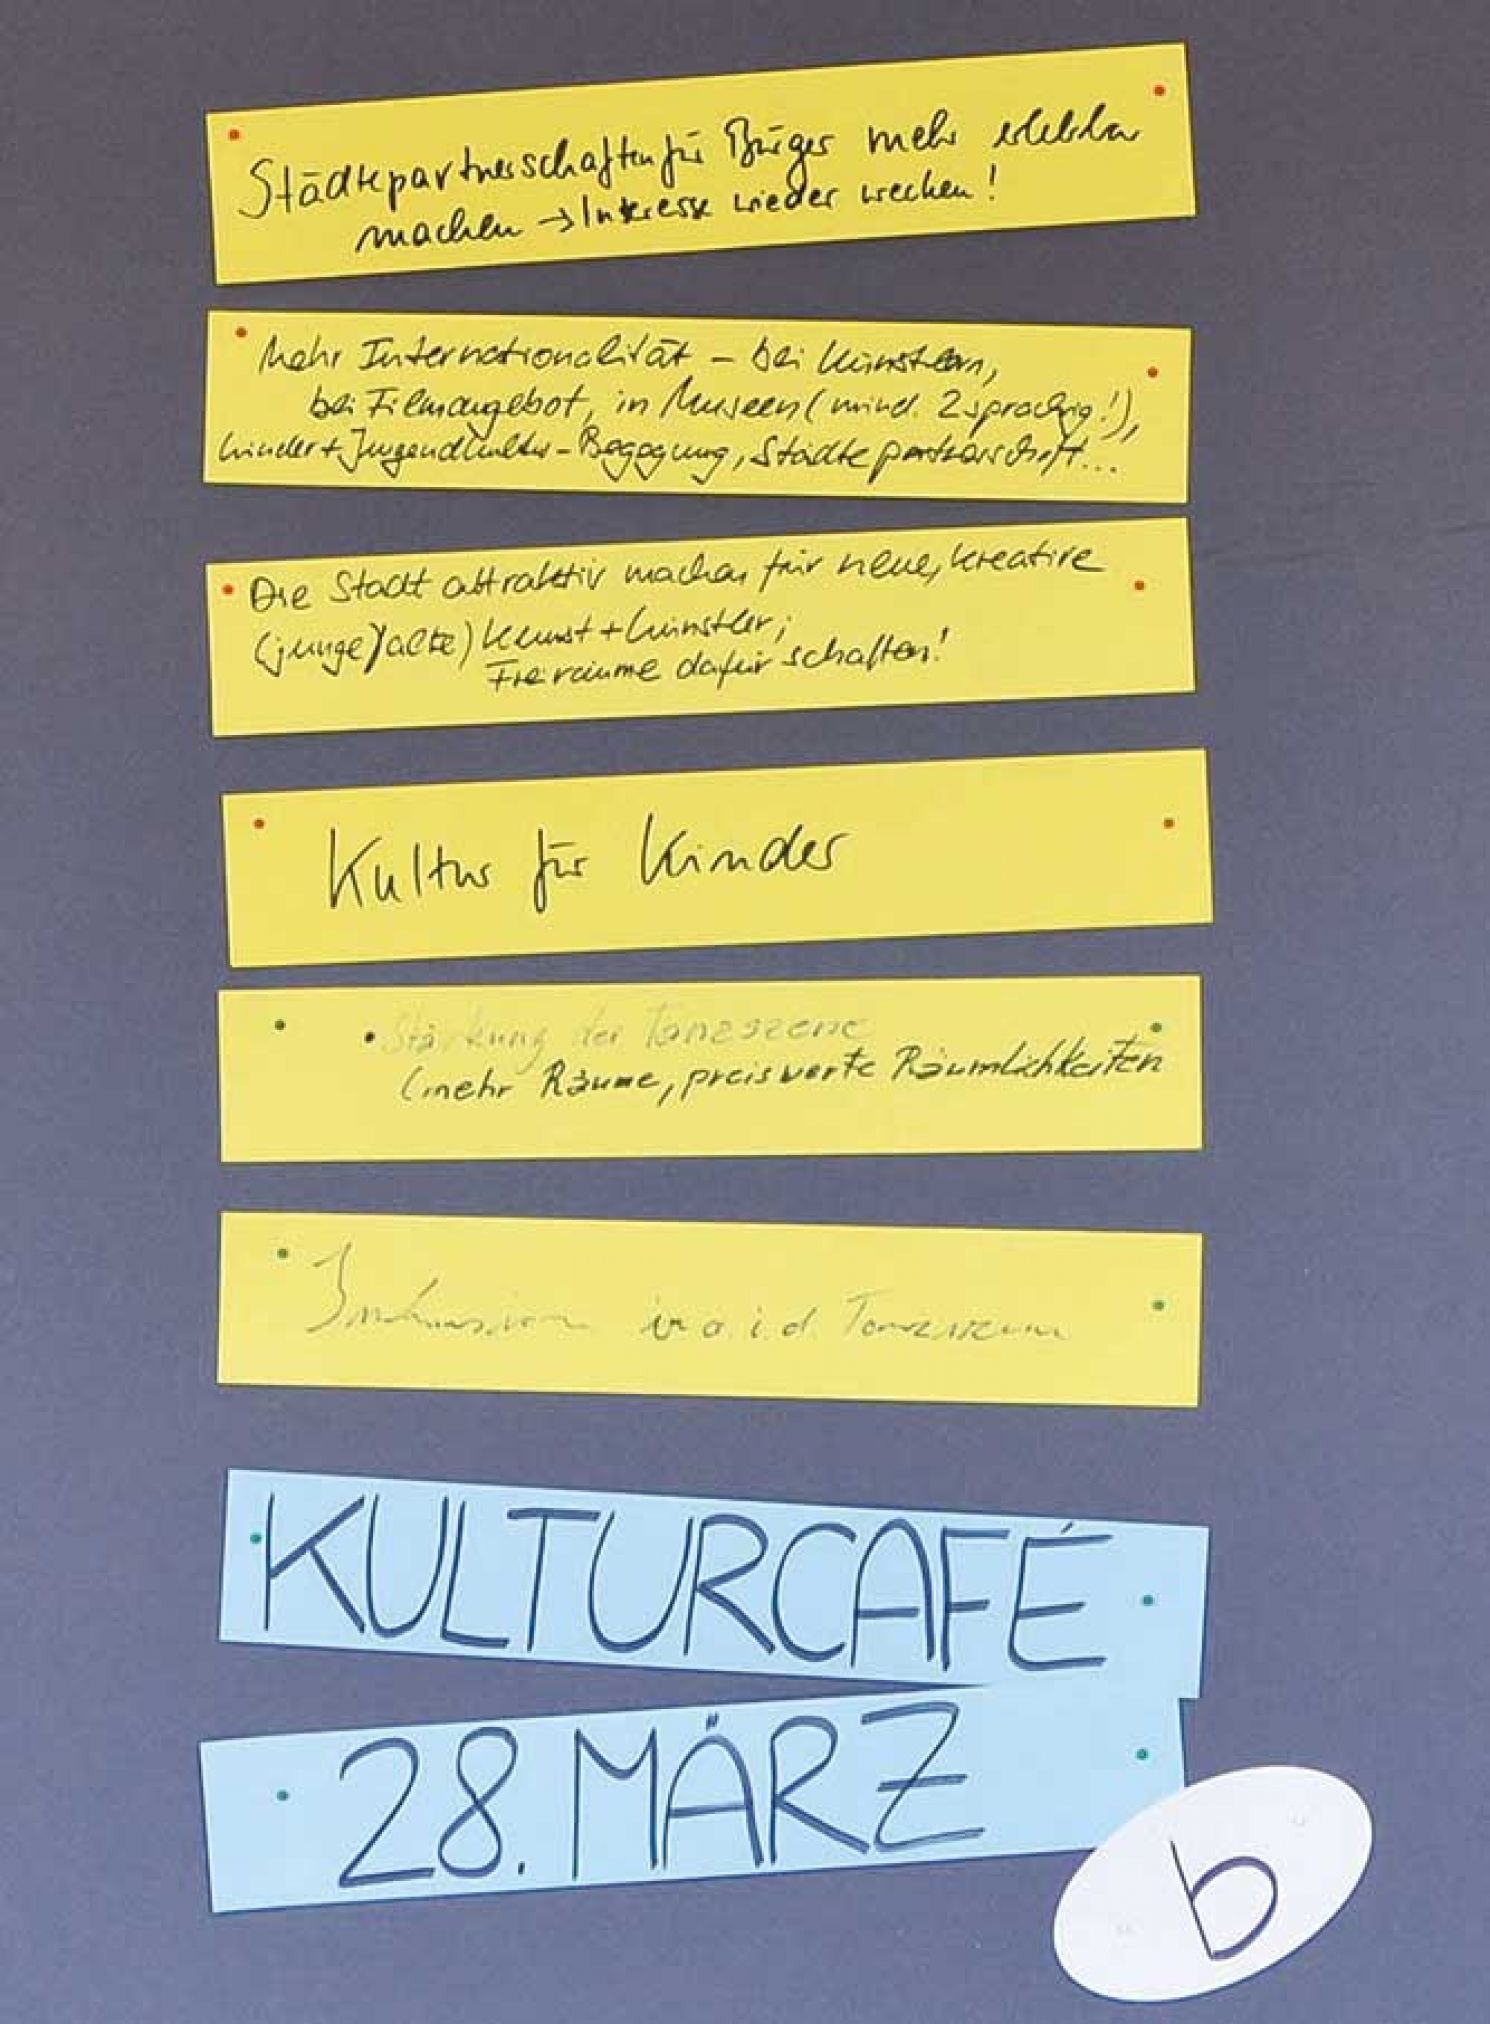 Städtepartnerschaften für Bürger mehr erlebbar
machen → Interesse wieder wecken!
Mehr Internationalität - bei Künstlern,
bei Filmangebot, in Museen (mind. 2sprachig!),
Kinder + Jugendkultur - Begegnung, Städtepartnerschaft...
Die Stadt attraktiv machen für neue, kreative
(junge)/alte) Kunst + Künstler;
Freiräume dafür schaffen!
Kultur für Kinder
• Stärkung der Tanzszene
(mehr Räume, preiswerte Räumlichkeiten
Inklusion i.d. Tanzszene
KULTURCAFÉ
28. MÄRZ
b